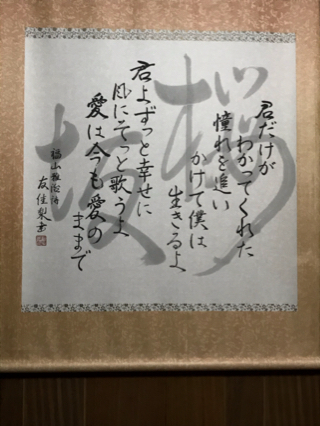 桜坂
君だけが
わかってくれた
憧れを追い
かけて僕は
生きるよ
君よずっと幸せに
風にそっと歌うよ
愛は今も愛の
ままで
福山雅治詩
友佳梨書